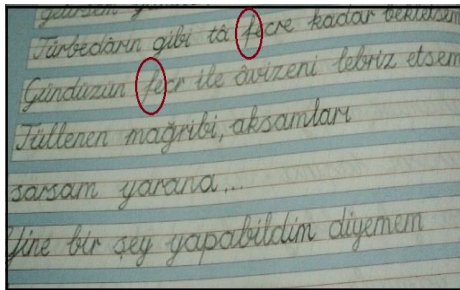 Türbedârın gibi tâ fecre kadar bekletsem
Gündüzün fecr ile âvizeni lebriz etsem
Tüllenen mağribi, akşamları
sarsam yarana...
Yine bir şey yapabildim diyemem